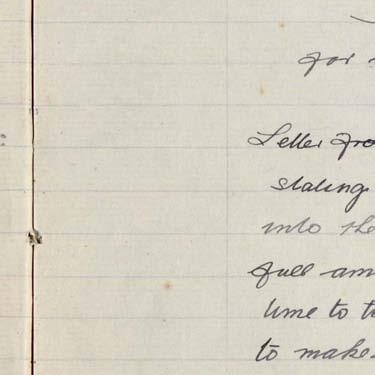 for
Letter fro
stating
into the
full am
time to t
to make